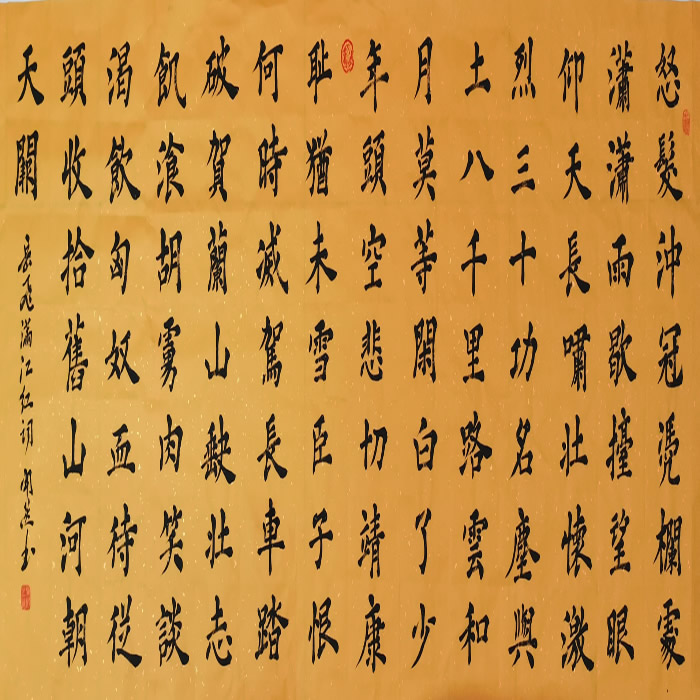 怒髮沖冠凴欄處
瀟瀟雨歇擡望眼
仰天長嘯壯懷激
烈三十功名塵與
土八千里路雲和
月莫等閑白了少
年頭空悲切靖康
耻猶未雪臣子恨
何時滅駕長車踏
破賀蘭山缺壯志
飢湌胡虜肉笑談
渴飲匈奴血待從
頭收拾舊山河朝
天闕
岳飛滿江紅詞 书